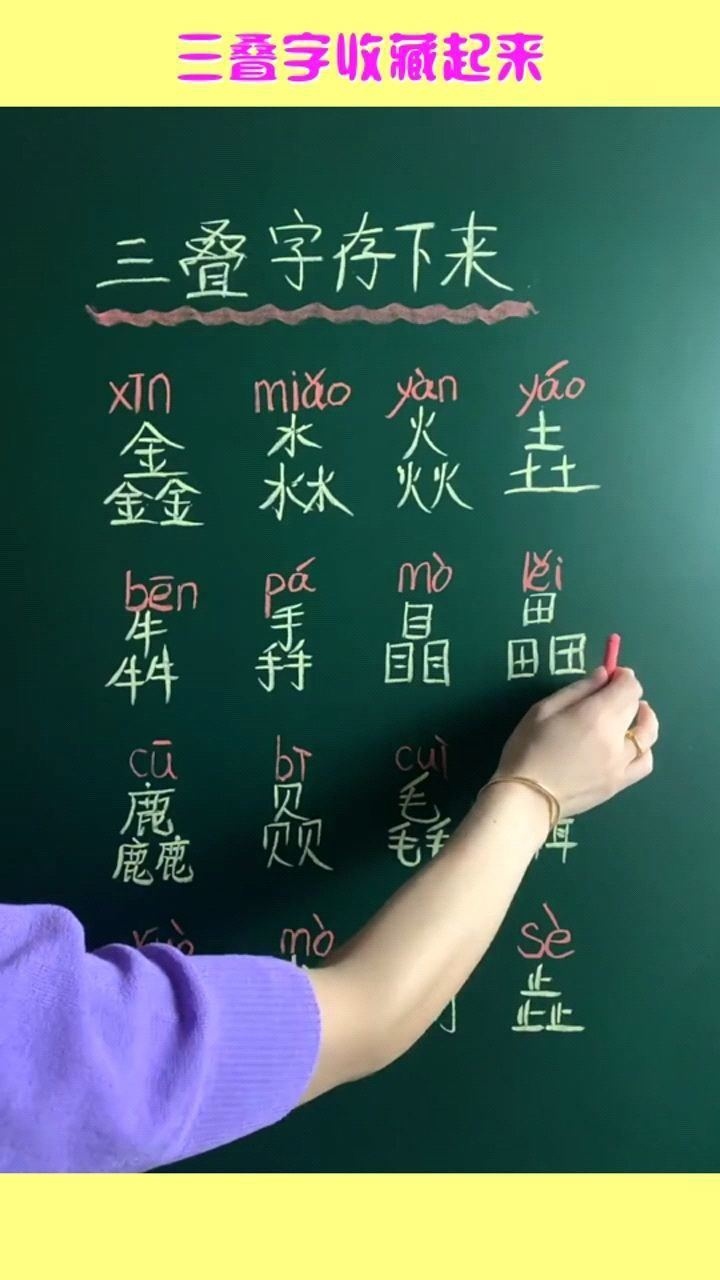 三叠字收藏起来
三叠字存下来
xīn miǎo yàn yáo
鑫 淼 焱 垚
bēn pá mò lěi
犇 掱 瞐 畾
cū bì cuì
麤 赑 毳
mò sè
歮